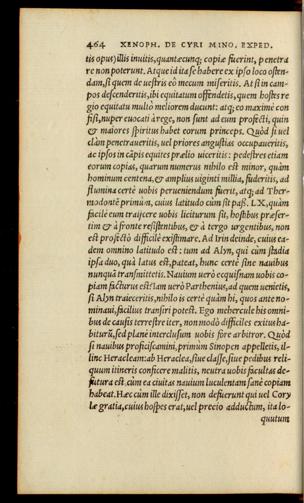 464 XENOPH. DE CYRI MINO. EXPED.
tis opus) illis inuitis, quantæcunq; copiæ fuerint, penetra
re non poterunt. Atque id ita se habere ex ipso loco osten-
dam, si quem de uestris eò mecum miseritis. At si in cam-
pos descenderitis, ibi equitatum offendetis, quem hostes re
gio equitatu multò meliorem ducunt: atq; eo maximè con
fisi, nuper euocati à rege, non sunt ad eum profecti, quin
& maiores spiritus habet eorum princeps. Quòd si uel
clàm penetraueritis, uel priores angustias occupaueritis,
ac ipsos in cāpis equites prælio uiceritis: pedestres etiam
eorum copias, quarum numerus nihilo est minor, quàm
hominum centena, & amplius uiginti millia, fuderitis, ad
flumina certè uobis perueniendum fuerit, atq; ad Ther-
modontē primùm, cuius latitudo cùm sit pass. LX, quàm
facile eum traijcere uobis liciturum sit, hostibus præser-
tim & à fronte resistentibus, & à tergo urgentibus, non
est profectò difficile existimare. Ad Irin deinde, cuius ea-
dem omnino latitudo est: tum ad Alyn, qui cùm stadia
ipsa duo, quà latus est, pateat, hunc certè sine nauibus
nunquā transmittetis. Nauium uerò ecquisnam uobis co-
piam facturus est? iam uerò Parthenius, ad quem uenietis,
si Alyn traieceritis, nihilo is certè quàm hi, quos ante no-
minaui, facilius transiri potest. Ego mehercule his omni-
bus de causis terrestre iter, non modò difficiles exitus ha-
biturū, sed planè interclusum uobis fore arbitror. Quòd
si nauibus proficiscamini, primùm Sinopen appelletis, il-
linc Heracleam: ab Heraclea, siue classe, siue pedibus reli-
quum itineris conficere malitis, neutra uobis facultas de-
futura est. cùm ea ciuitas nauium luculentam sanè copiam
habeat. Hæc cùm ille dixisset, non defuerunt qui uel Cory
læ gratia, cuius hospes erat, uel precio adductum, ita lo-
quutum